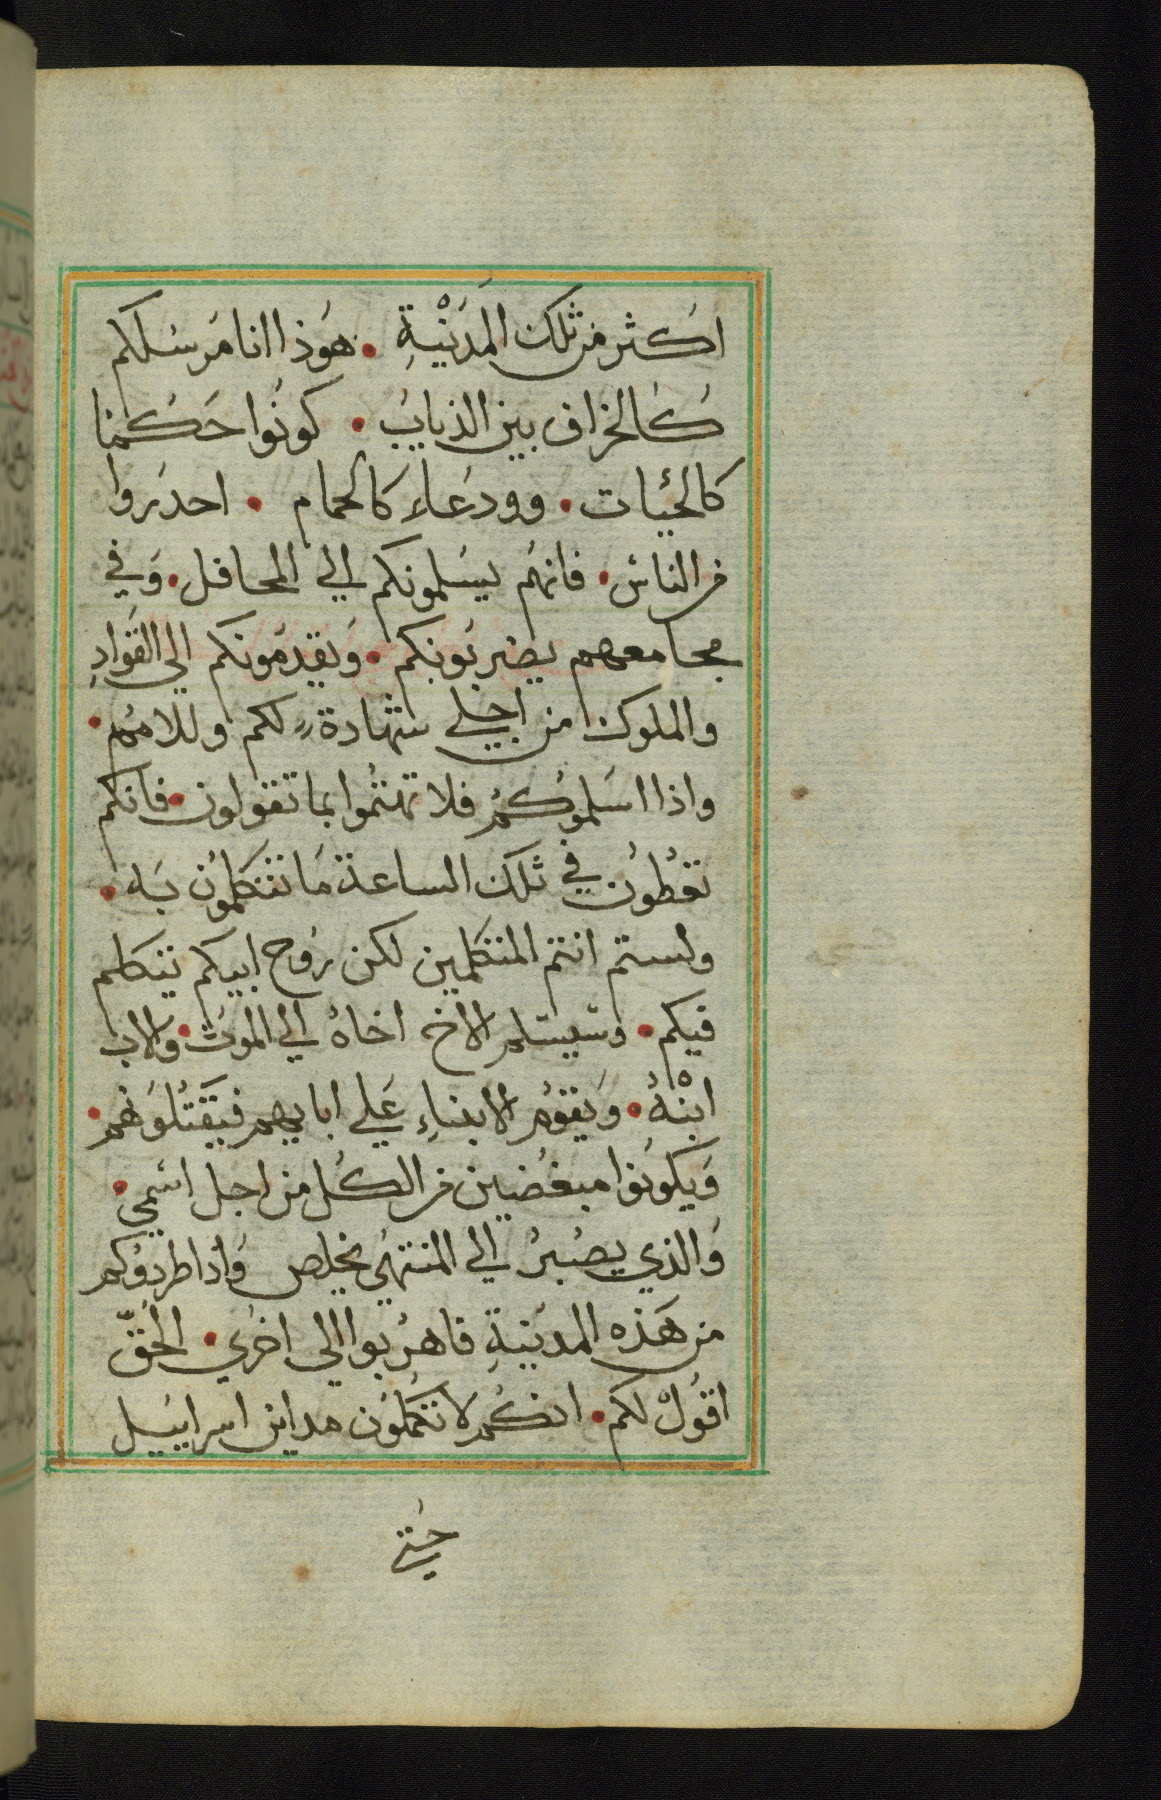 اكثر من تلك المدَينْةِ • هَوَذا انا مَرسَلكم
كَالخراف بين الذيابَ • كونُوا حَكما
كالحيَات • وودَعَاء كالحمام • احدَروا
من الناسَ • فانهُم يسَلمونكم الي المحافل • وَفي
مجامعهم يضربَونكم • وَيقدمَونكم الي القَوادِ
والملوك من اجلي شهَادة لكم وللامُم •
واذا اسَلموُكمُ فلا تهتمُوا بما تقولون • فانكم
تعُطُونَ في تلك الساعة مَا تتكلمُونَ بَه •
ولستم انتم المتكلمين لكن رَوح ابيكم يتكلم
فيكم • وسَيسَلم الاخ اخاهُ الي الموتَ • والابَ
ابنْهُ • وَيقوُم الابنَاءِ عَلي ابايهم فيَقَتُلوَنهم •
وَيكونُوا مبغضُين من الكل من اجل اسَمي •
وَالذي يصُبرُ الي المنتهَي يخلص وَاذا طردوُكم
من هَذه المدَينةِ فاهرُبوا الي اخرَي • الحُقّ
اقوُلْ لكم • انكمُ لا تكملوُن مداين اسراييَل
حُتي